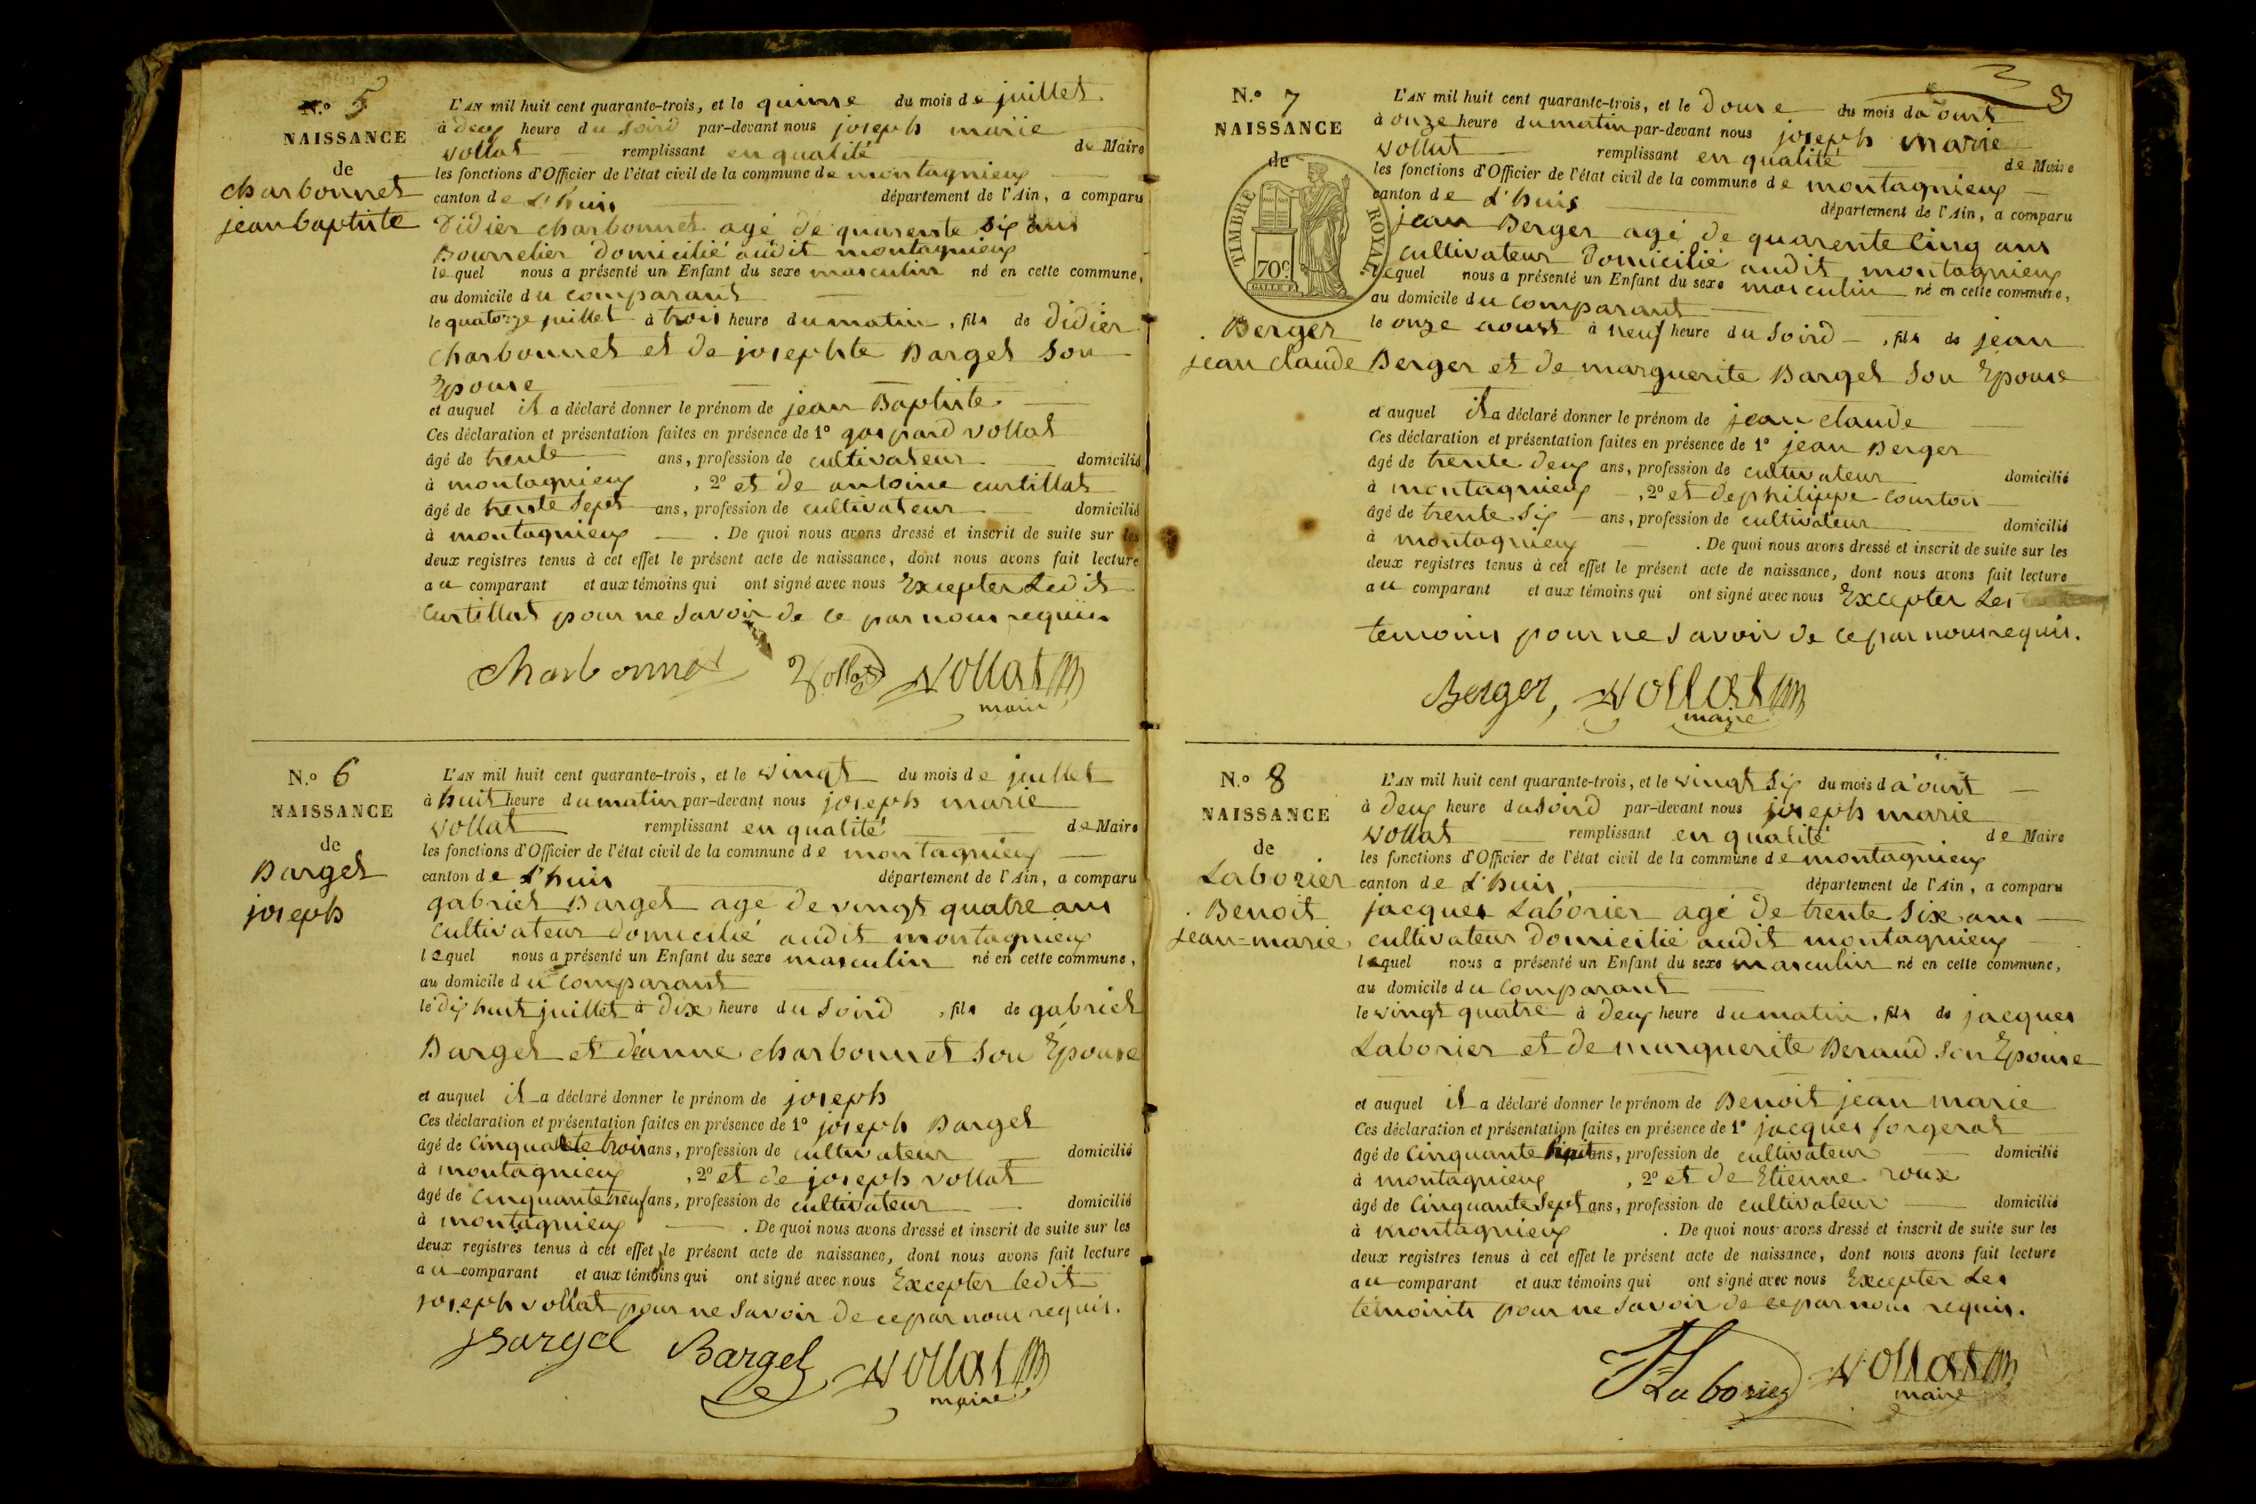 N.o 5
NAISSANCE
de
charbonnet
jean baptiste
L'AN mil huit cent quarante-trois, et le quinse du mois de juillet
à deux heure du soird par-devant nous joseph marie
vollat remplissant en qualité de Maire
les fonctions d'Officier de l'état civil de la commune de montagnieux
canton de L'huis département de l'Ain, a comparu
Didier charbonnet agé de quarente six ans
Bourrelier domicilié audit montagnieux
lequel nous a présenté un Enfant du sexe masculin né en cette commune,
au domicile du comparant
le quatorze juillet à trois heure du matin, fils de didier
charbonnet et de josephte Barget son
Epouse
et auquel il a déclaré donner le prénom de jean Baptiste
Ces déclaration et présentation faites en présence de 1º gaspard vollat
âgé de trente ans, profession de cultivateur domicilié
à montagnieux, 2º et de antoine curtillat
âgé de trente sept ans, profession de cultivateur domicilié
à montagnieux. De quoi nous avons dressé et inscrit de suite sur les
deux registres tenus à cet effet le présent acte de naissance, dont nous avons fait lecture
au comparant et aux témoins qui ont signé avec nous Excepter Ledit
Curtillat pour ne savoir de ce par nous requis
Charbonnet Vollat Vollat
maire
N.o 6
NAISSANCE
de
Barget
joseph
L'AN mil huit cent quarante-trois, et le vingt du mois de juillet
à huit heure du matin par-devant nous joseph marie
vollat remplissant en qualité de Maire
les fonctions d'Officier de l'état civil de la commune de montagnieux
canton de L'huis département de l'Ain, a comparu
gabriel Barget age de vingt quatre ans
cultivateur domicilié audit montagnieux
lequel nous a présenté un Enfant du sexe masculin né en cette commune,
au domicile du comparant
le dix huit juillet à dix heure du soird, fils de gabriel
Barget et d'éanne charbonnet son Épouse
et auquel il a déclaré donner le prénom de joseph
Ces déclaration et présentation faites en présence de 1º joseph Barget
âgé de cinquante trois ans, profession de cultivateur domicilié
à montagnieux, 2º et de joseph vollat
âgé de cinquante neuf ans, profession de cultivateur domicilié
à montagnieux. De quoi nous avons dressé et inscrit de suite sur les
deux registres tenus à cet effet le présent acte de naissance, dont nous avons fait lecture
au comparant et aux témoins qui ont signé avec nous Excepter ledit
joseph vollat pour ne savoir de ce par nous requis.
Bargel Bargel Vollat
maire
3
N.o 7
NAISSANCE
de
TIMBRE ROYAL
70 c
Berger
jean claude
L'AN mil huit cent quarante-trois, et le douse du mois d'aoust
à onze heure du matin par-devant nous joseph marie
vollat remplissant en qualité de Maire
les fonctions d'Officier de l'état civil de la commune de montagnieux
canton de L'huis département de l'Ain, a comparu
jean Berger agé de quarente cinq ans
cultivateur domicilié audit montagnieux
lequel nous a présenté un Enfant du sexe masculin né en cette commune,
au domicile du comparant
le onze aoust à neuf heure du soird, fils de jean
Berger et de marguerite Barget son Epouse
et auquel il a déclaré donner le prénom de jean claude
Ces déclaration et présentation faites en présence de 1º jean Berger
âgé de trente deux ans, profession de cultivateur domicilié
à montagnieux, 2º et de philippe courton
âgé de trente six ans, profession de cultivateur domicilié
à montagnieux. De quoi nous avons dressé et inscrit de suite sur les
deux registres tenus à cet effet le présent acte de naissance, dont nous avons fait lecture
au comparant et aux témoins qui ont signé avec nous Excepter Les
temoins pour ne savoir de ce par nous requis.
Berger, Vollat
maire
N.o 8
NAISSANCE
de
Laborier
Benoit
jean=marie
L'AN mil huit cent quarante-trois, et le vingt six du mois d'a'oust
à deux heure du soird par-devant nous joseph marie
vollat remplissant en qualité de Maire
les fonctions d'Officier de l'état civil de la commune de montagnieux
canton de L'huis, département de l'Ain, a comparu
jacques Laborier agé de trente six ans
cultivateur domicilié audit montagnieux
lequel nous a présenté un Enfant du sexe masculin né en cette commune,
au domicile du comparant
le vingt quatre à deux heure du matin, fils de jacques
Laborier et de marguerite Beraud son Epouse
et auquel il a déclaré donner le prénom de Benoit jean marie
Ces déclaration et présentation faites en présence de 1º jacques forgerat
âgé de cinquante huit ans, profession de cultivateur domicilié
à montagnieux, 2º et de Etienne roux
âgé de cinquante sept ans, profession de cultivateur domicilié
à montagnieux. De quoi nous avons dressé et inscrit de suite sur les
deux registres tenus à cet effet le présent acte de naissance, dont nous avons fait lecture
au comparant et aux témoins qui ont signé avec nous Excepter Les
témoints pour ne savoir de ce par nous requis.
Laborier Vollat
maire